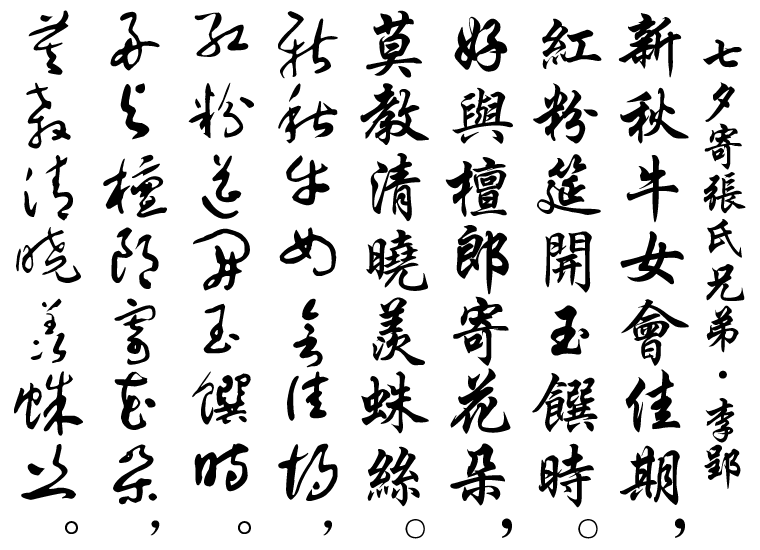 七夕寄張氏兄弟·李郢
新秋牛女會佳期，
紅粉筵開玉饌時。
好與檀郎寄花朵，
莫教清曉羨蛛絲。
新秋牛女會佳期，
紅粉筵開玉饌時。
好與檀郎寄花朵，
莫教清曉羨蛛絲。